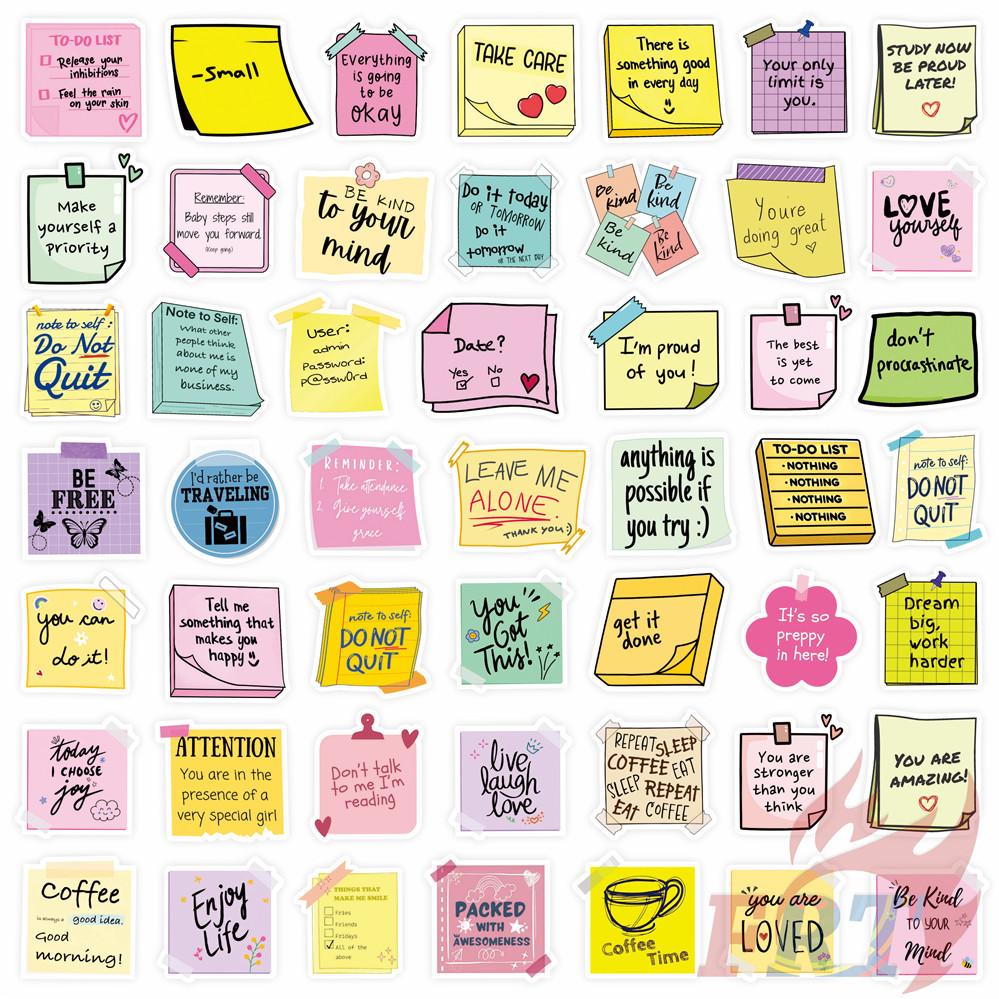 TO-DO LIST
Release your
inhibitions
Feel the rain
on your skin
-Small
Everything
is going
to be
okay
TAKE CARE
There is
something good
in every day
Your only
limit is
you.
STUDY NOW
BE PROUD
LATER!
Make
yourself a
priority
Remember:
Baby steps still
move you forward.
(Keep going)
BE KIND
to your
mind
Do it today
OR TOMORROW
Do it
tomorrow
OR THE NEXT DAY
Be
kind
Be
kind
Be
kind
Be
kind
You're
doing great
LOVE
yourself
note to self:
Do Not
Quit
Note to Self:
What other
people think
about me is
none of my
business.
User:
admin
Password:
p@ssw0rd
Date?
Yes No
I'm proud
of you!
The best
is yet
to come
don't
procrastinate
BE
FREE
I'd rather be
TRAVELING
REMINDER:
1. Take attendance
2. Give yourself
grace
LEAVE ME
ALONE.
THANK YOU :)
anything is
possible if
you try :)
TO-DO LIST
·NOTHING
·NOTHING
·NOTHING
·NOTHING
note to self:
DO NOT
QUIT
you can
do it!
Tell me
something that
makes you
happy
note to self:
DO NOT
QUIT
You
Got
This!
get it
done
It's so
preppy
in here!
Dream
big,
work
harder
today
I CHOOSE
joy
ATTENTION
You are in the
presence of a
very special girl
Don't talk
to me I'm
reading
live
laugh
love
REPEAT SLEEP
COFFEE EAT
SLEEP REPEAT
EAT COFFEE
You are
stronger
than you
think
YOU ARE
AMAZING!
Coffee
is always a good idea.
Good
morning!
Enjoy
Life
THINGS THAT
MAKE ME SMILE
Fries
Friends
Fridays
All of the
above
PACKED
WITH
AWESOMENESS
Coffee
Time
you are
LOVED
Be Kind
TO YOUR
Mind